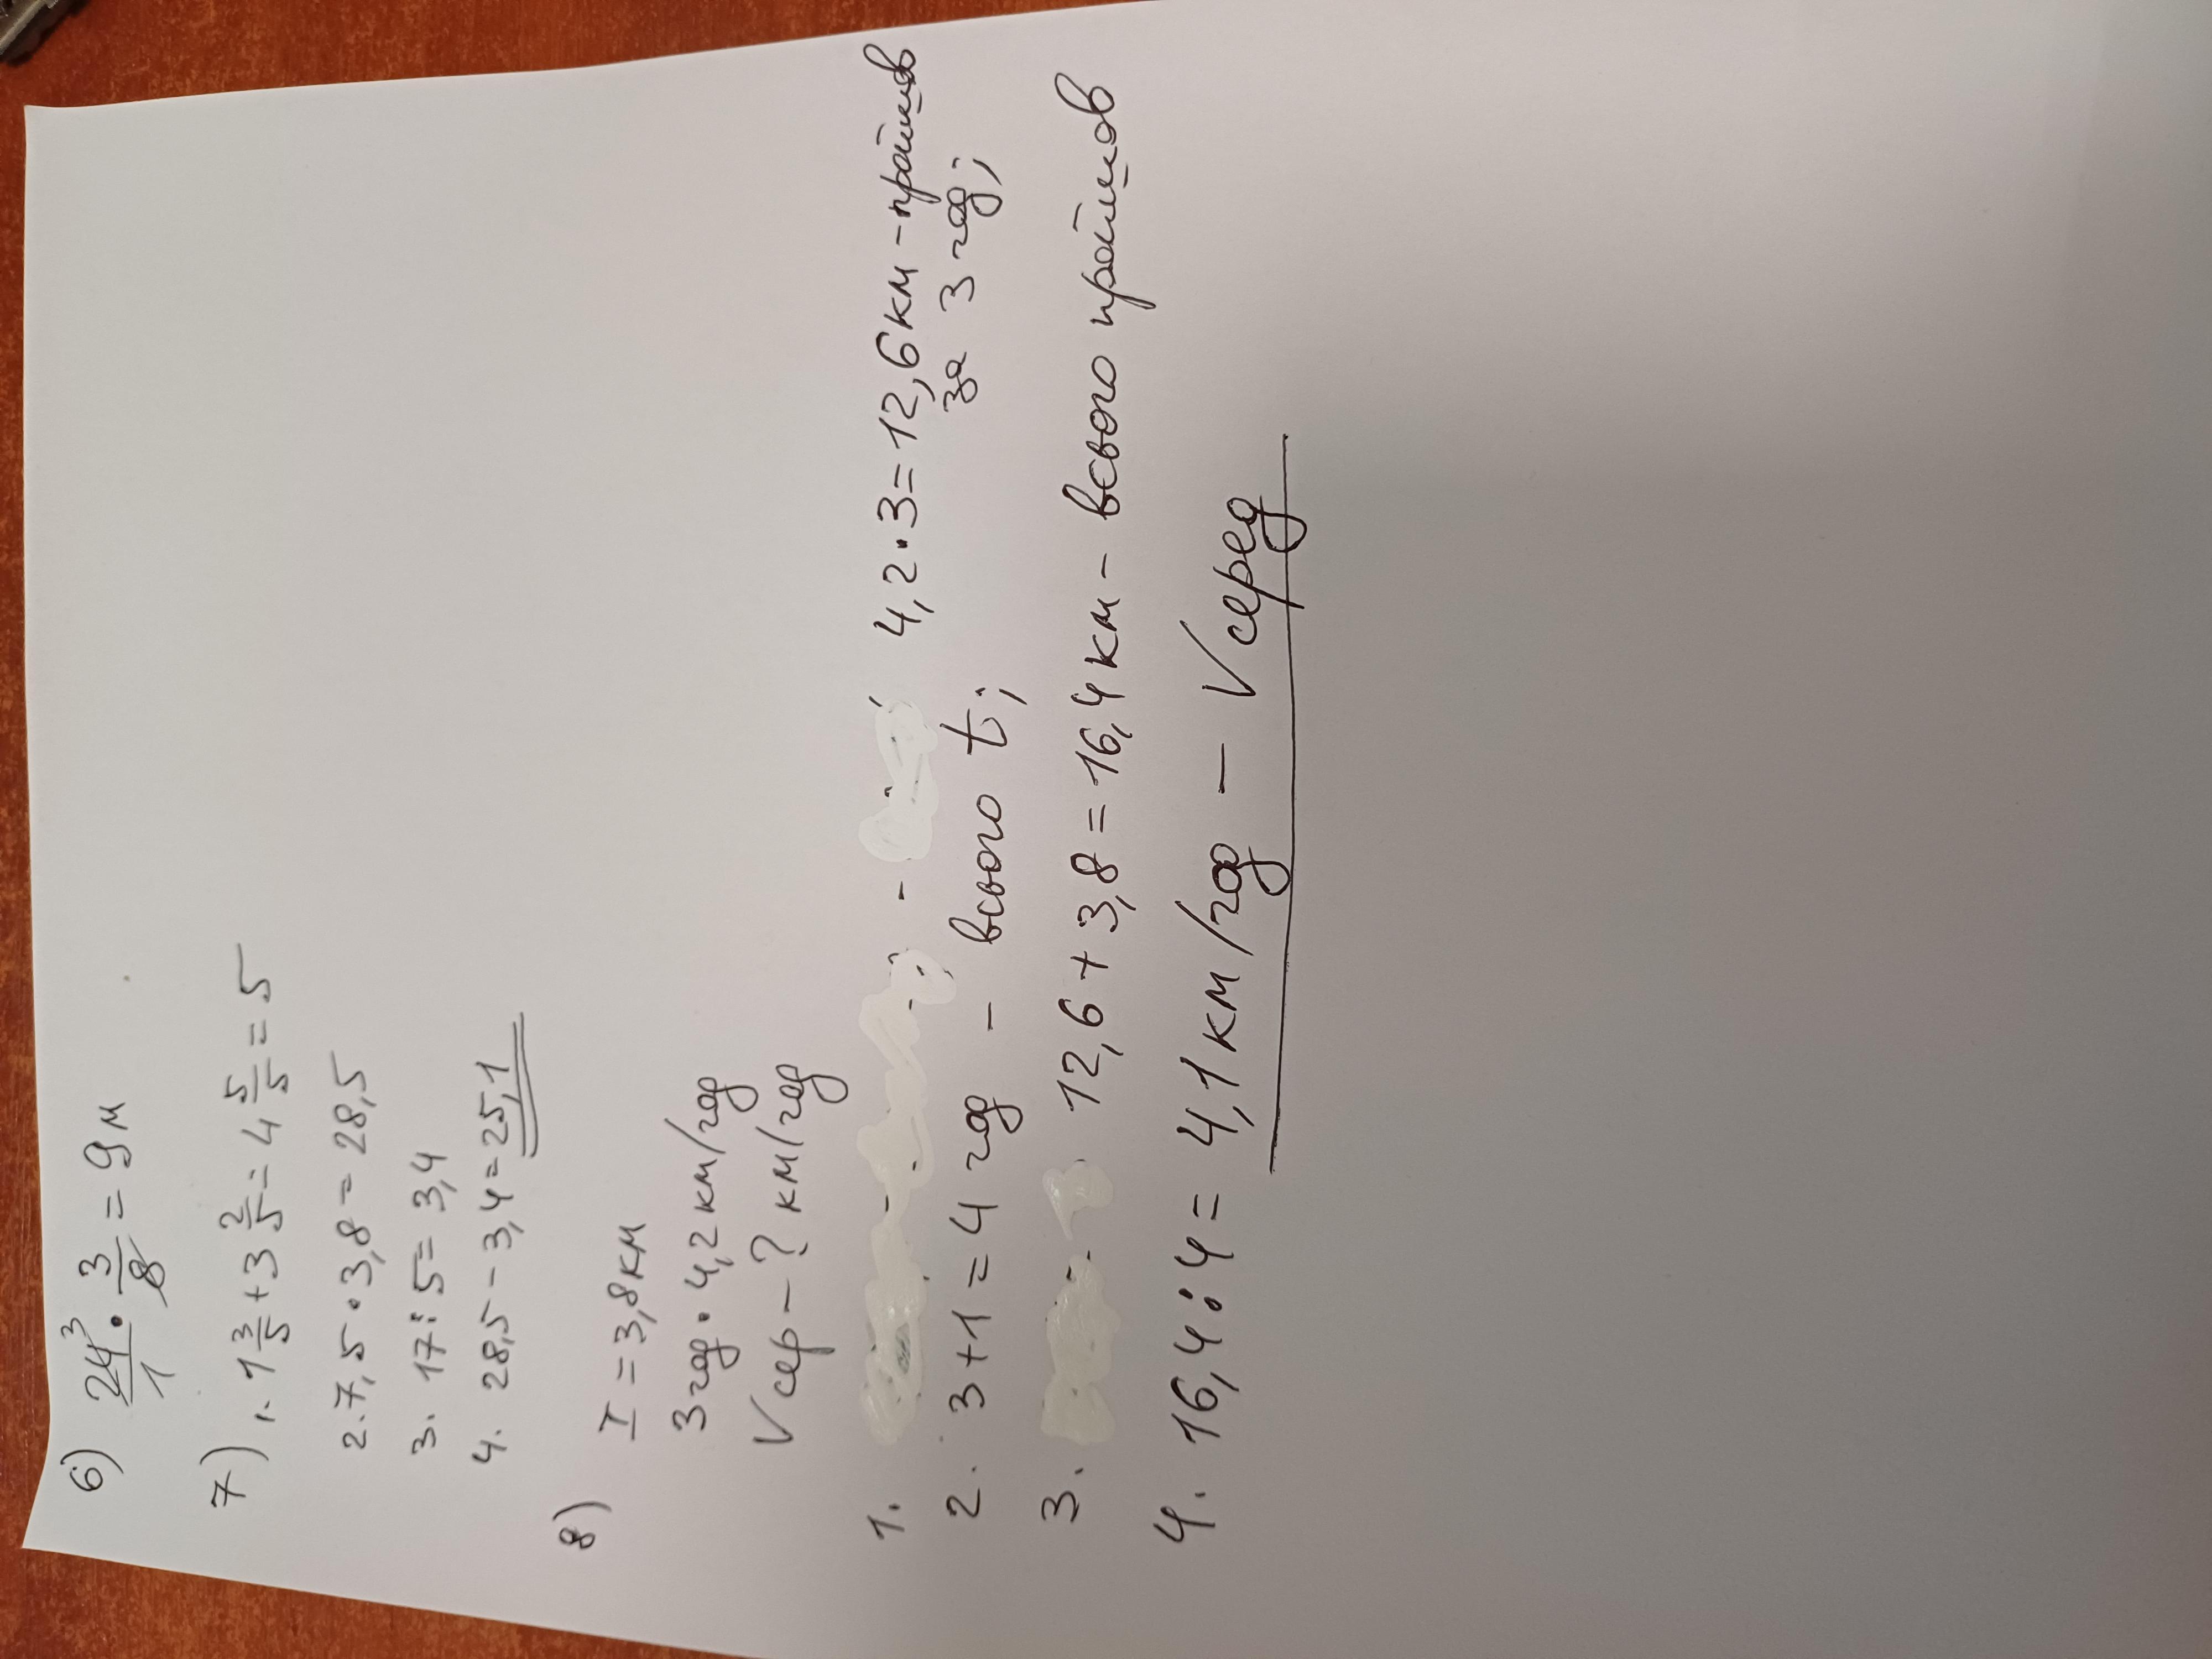 6) 24³/1 · 3/8 = 9 м
7) 1. 1 3/5 + 3 2/5 = 4 5/5 = 5
2. 7,5 · 3,8 = 28,5
3. 17 : 5 = 3,4
4. 28,5 - 3,4 = 25,1
8) I = 3,8 км
3 год · 4,2 км/год
V сер - ? км/год
1. 4,2 · 3 = 12,6 км - пройшов
за 3 год;
2. 3 + 1 = 4 год - всього t;
3. 12,6 + 3,8 = 16,4 км - всього пройшов
4. 16,4 : 4 = 4,1 км/год - V серед